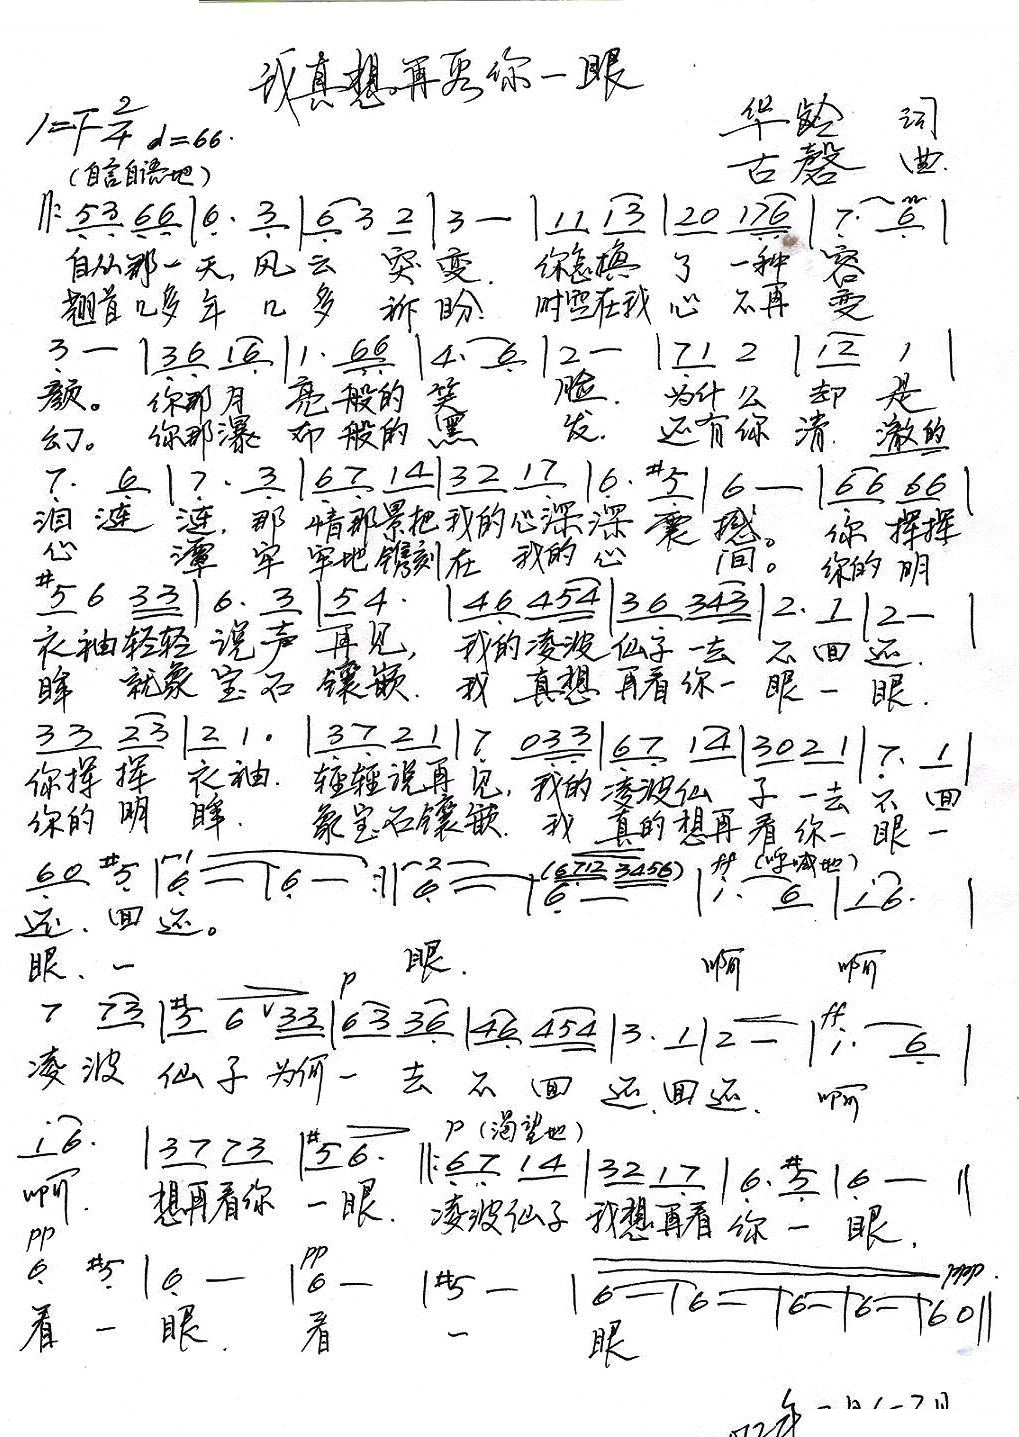 我真想再看你一眼
1=F 2/4 ♩=66.
华龄 词
古磬 曲.
(自言自语地)
‖: 53 66 | 6. 3 | 6 3 2 | 3 — | 11 13 | 20 176 | 7. 6 |
自从那一天, 风云 突变. 你怎换了一种 容
翘首几多年 几多 祈盼. 时空在我心 不再 变
3 — | 36 16 | 1. 66 | 4. 6 | 2 — | 71 2 | 12 1 |
颜。 你那月 亮般的笑 脸. 为什么 却 是
幻。 你那瀑 布般的黑 发. 还有你 清 澈的
7. 6 | 7. 3 | 67 14 | 32 17 | 6. #5 | 6 — | 66 66 |
泪 涟 涟. 那 情那景把我的心深深 震 撼。 你 挥挥
心 潭 牢 牢地镌刻在 我的 心 间。 你的 明
#5 6 33 | 6. 3 | 54. | 46 454 | 36 343 | 2. 1 | 2 — |
衣袖轻轻 说声 再见, 我的凌波 仙子一去 不 回 还.
眸 就象 宝石 镶嵌. 我 真想 再看你一 眼 一 眼.
33 23 | 21. | 37 21 | 7 033 | 67 14 | 3021 | 7. 1 |
你挥 挥 衣袖. 轻轻说再 见, 我的凌波仙 子 一去 不 回
你的 明 眸 象宝石镶嵌. 我 真的想再 看 你一 眼 一
60 #5 | 6 — | 6 — :‖ 6 — | 6 — (6712 3456) | ff (呼喊地) i. 6 | i 6. |
还、回 还。
眼、一 眼. 啊 啊
7 73 | #5 6 33 | p 63 36 | 46 454 | 3. 1 | 2 — | ff i. 6 |
凌 波 仙 子 为何一 去 不 回 还、回还. 啊
i 6. | 37 73 | #5 6. ‖: p (渴望地) 67 14 | 32 17 | 6. #5 | 6 — ‖
啊. 想再看你 一 眼. 凌波仙子 我想再看 你 一 眼.
pp
6 #5 | 6 — | pp 6 — | #5 — | 6 — | 6 — | 6 — | 6 — | 60 ‖ ppp.
看 一 眼. 看 一 眼